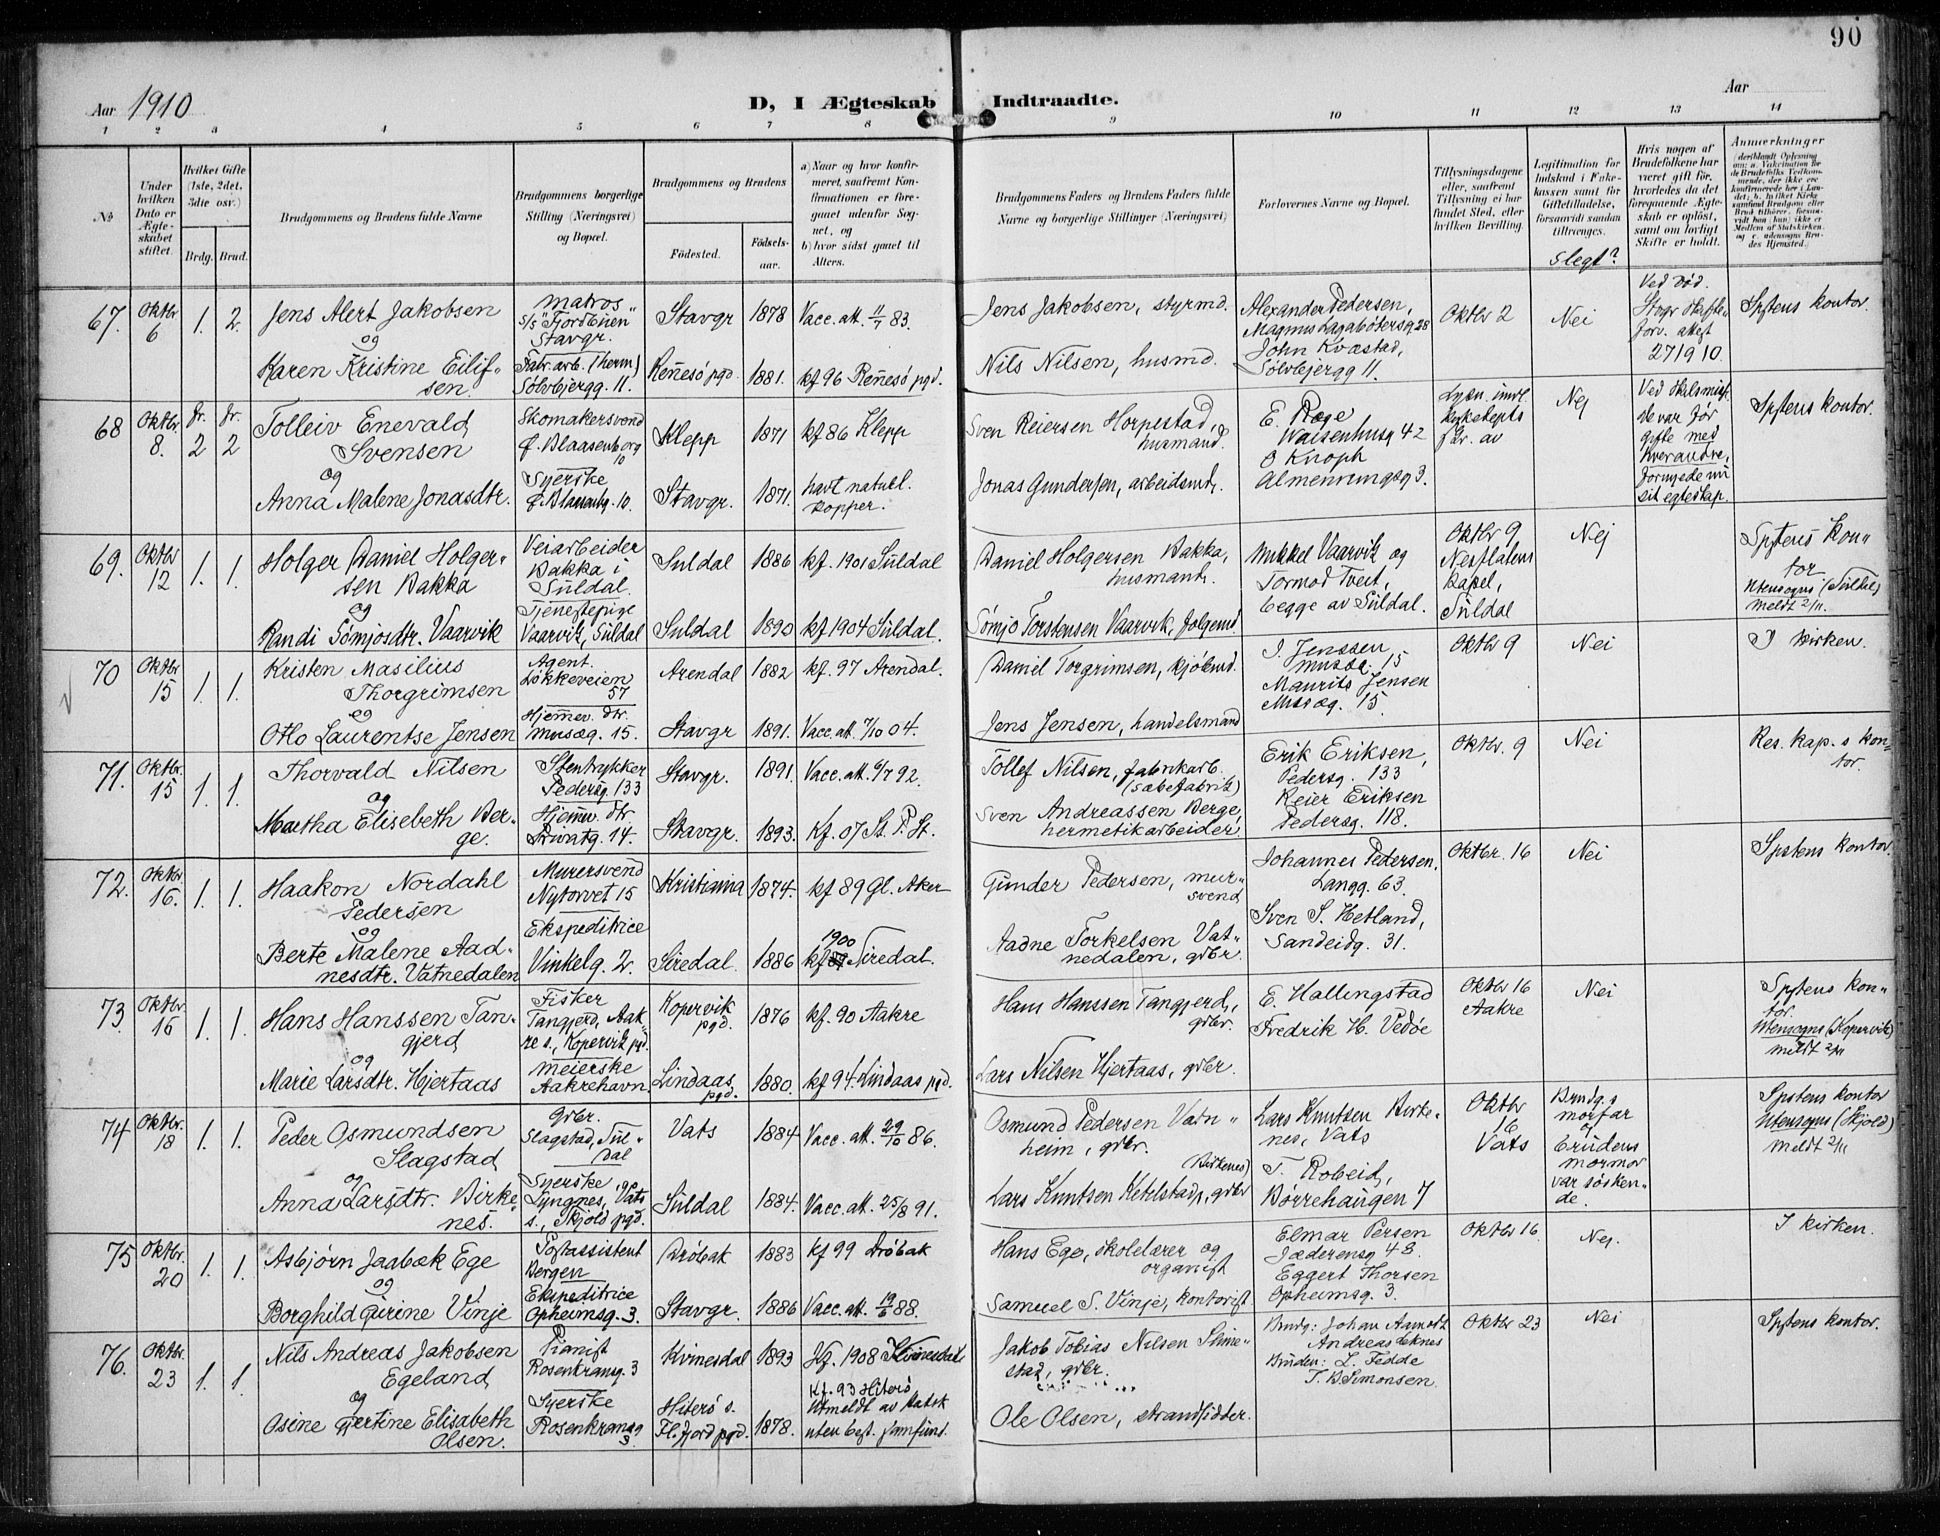 90
Aar 1910
D, I Ægteskab Indtraadte.
Aar
1 2 3 4 5 6 7 8 9 10 11 12 13 14
No
Under hvilken Dato er Ægteskabet stiftet.
Hvilket Gifte (1ste, 2det, 3die osv.)
Brdg. Brud.
Brudgommens og Brudens fulde Navne
Brudgommens borgerlige Stilling (Næringsvei) og Bopæl.
Brudgommens og Brudens
Fødested.
Fødselsaar.
a) Naar og hvor konfirmeret, saafremt Konfirmationen er foregaaet udenfor Sognet, og
b) hvor sidst gaaet til Alters.
Brudgommens Faders og Brudens Faders fulde Navne og borgerlige Stillinger (Næringsvei)
Forlovernes Navne og Bopæl.
Tillysningsdagene eller, saafremt Tillysning ei har fundet Sted, eller hvilken Bevilling.
Legitimation for Indskud i Enkekassen samt for Giftetilladelse, forsaavidt saadan tiltrænges.
Slegt?
Hvis nogen af Brudefolkene har været gift før, hvorledes da det foregaaende Ægteskab er opløst, samt om lovligt Skifte er holdt.
Anmærkninger
67. Oktbr 6 1. 2.
Jens Alert Jakobsen
og
Karen Kristine Eilifsen.
Matros
s/s "Fjordbuen"
Stavgr.
Fabr.arb. (herm)
Sølvbjergg. 11.
Stavgr 1878 Vacc. att. 11/7 83.
Rennesø pgd. 1881. kf 96 Rennesø pgd.
Jens Jakobsen, styrmd.
Nils Nilsen, husmd.
Alexander Pedersen,
Magnus Lagabøtersg 28
John Kvæstad,
Sølvbjergg 11.
Oktbr 2
Nei
Ved død.
27 1910.
Spstens kontor.
68 Oktbr. 8. fr. 2 fr. 2
Tolleiv Enevald
Svensen
og
Anna Malene Jonasdtr.
Skomakersvend
Ø. Blaasenborg
10
Syerske
Ø. Blaasenbg. 10.
Klepp 1871 kf 86 Klepp
Stavgr. 1871. havt naturl.
kopper.
Sven Reiersen Horpestad,
husmand.
Jonas Gundersen, arbeidsmd.
E. Roge
Waisenhusg 42
O Knoph
Almenningsg 3.
Nej
Ved skilsmisse
De var før
gifte med
hverandre,
fornyede nu
sit egteskap.
Spstens kontor.
69. Oktbr 12 1. 1.
Holger Daniel Holgersen Bakka
og
Randi Sømjosdtr. Vaarvik
Veiarbeider
Bakka i
Suldal.
Tjenestepige
Vaarvik, Suldal
Suldal 1886 kf. 1901 Suldal
Suldal 1890 kf 1904 Suldal.
Daniel Holgersen Bakka,
husmand.
Sømjo Torstensen Vaarvik, folgemd.
Mikkel Vaarvik og
Tormod Tveit,
begge av Suldal.
Oktbr 9
Nesflatens
kapel,
Suldal
Nej
Spstens kontor
Utensogns (Suldal)
meldt 2/11.
70 Oktbr 15 1. 1.
Kristen Masilius
Thorgrimsen
og
Otlo Laurentse Jensen
Agent.
Løkkeveien
57
Hjemmev. dtr.
Musæg. 15.
Arendal 1882 kf. 97 Arendal.
Stavgr 1891. Vacc. att. 7/10 04.
Daniel Torgrimsen, kjøbmd.
Jens Jensen, handelsmand
J. Jenssen
Musæg. 15
Maurits Jensen
Musæg. 15.
Oktbr 9
Nei
I kirken.
71. Oktbr. 15 1. 1.
Thorvald Nilsen
og
Martha Elisebeth Berge.
Stentrykker
Pedersg. 133
Hjemv. dtr
Privatg. 14.
Stavgr. 1891. Vacc. att. 6/7 92.
Stavgr. 1893. Kf. 07 St. P. St.
Tollef Nilsen, fabrikarb.
(sæbefabrik)
Sven Andreassen Berge,
hermetikarbeider
Erik Eriksen,
Pedersg. 133
Reier Eriksen
Pedersg. 118.
Oktbr. 9
Nei
Res. kap.s kontor.
72. Oktbr 16. 1. 1.
Haakon Nordahl
Pedersen
og
Berte Malene Aadnesdtr. Vatnedalen
Murersvend
Nytorvet 15
Ekspeditrice
Vinkelg. 2.
Kristiania 1874. kf 89 Gl. Aker
Siredal. 1886 kf 1900 Siredal.
Gunder Pedersen, mursvend
Aadne Torkelsen Vatnedalen, grbr.
Johannes Pedersen,
Langg. 63.
Sven S. Hetland,
Sandeidg. 31.
Oktbr. 16
Nei
Spstens kontor.
73. Oktbr 16 1. 1.
Hans Hanssen Tangjerd
og
Marie Larsdtr. Hjertaas
Fisker
Tangjerd, Aakre s., Kopervik pgd.
Meierske
Aakrehavn.
Kopervik pgd. 1876 kf. 90 Aakre
Lindaas pgd. 1880. kf 94. Lindaas pgd.
Hans Hanssen Tangjerd,
grbr.
Lars Nilsen Hjertaas, grbr.
E. Hallingstad
Fredrik H. Vedøe
Oktbr 16
Aakre
Nei
Spstens kontor.
Utensogns (Kopervik)
meldt 2/11
74 Oktbr. 18 1. 1.
Peder Osmundsen
Slagstad
og
Anna Larsdtr. Birkenes.
Grbr.
Slagstad, Suldal
Syerske
Lyngnes, Vats
s., Skjold pgd.
Vats 1884 Vacc. att. 29/10 86.
Suldal 1884. Vacc. att. 25/8 91.
Osmund Pedersen Vatnheim, grbr.
(Birkenes)
Lars Knutsen Ketelstad, grbr
Lars Knutsen Birkenes, Vats
T. Robeid,
Børrehaugen 7
Oktbr
16
Vats
Brudg.s
morfar
og
brudens
mormor
var søskende.
Spstens kontor
Utensogns (Skjold)
meldt 2/11
75 Oktbr. 20 1. 1.
Asbjørn Jaabæk Ege
og
Borghild Gurine Vinje
Postassistent
Bergen
Ekspeditrice
Opheimsg. 3.
Drøbak 1883 kf 99 Drøbak
Stavgr. 1886 Vacc. att. 19/6 88.
Hans Ege, skolelærer og
organist
Samuel S. Vinje, kontorist
Elmar Persen
Jæderensg 48
Eggert Thorsen
Opheimsg. 3.
Oktbr 16
Nej.
I kirken.
76. Oktbr. 23 1. 1.
Nils Andreas Jakobsen
Egeland
og
Osine Gjertine Elisabeth
Olsen.
Pianist
Rosenkransg. 3
Syerske
Rosenkransg
3
Kvinesdal 1893 Kf. 1908 Kvinesdal
Hiterø s.
Fl.fjord pgd. 1878. Kf. 93 Hiterø
Utmeldt av statsk
uten best. samfund.
Jakob Tobias Nilsen Slimestad, grbr.
Ole Olsen, strandsidder.
Brudg: Johan Aamodt
Andreas Leknes
Bruden: L. Fedde
T. B. Simonsen.
Oktbr 23
Nei
Spstens kontor.